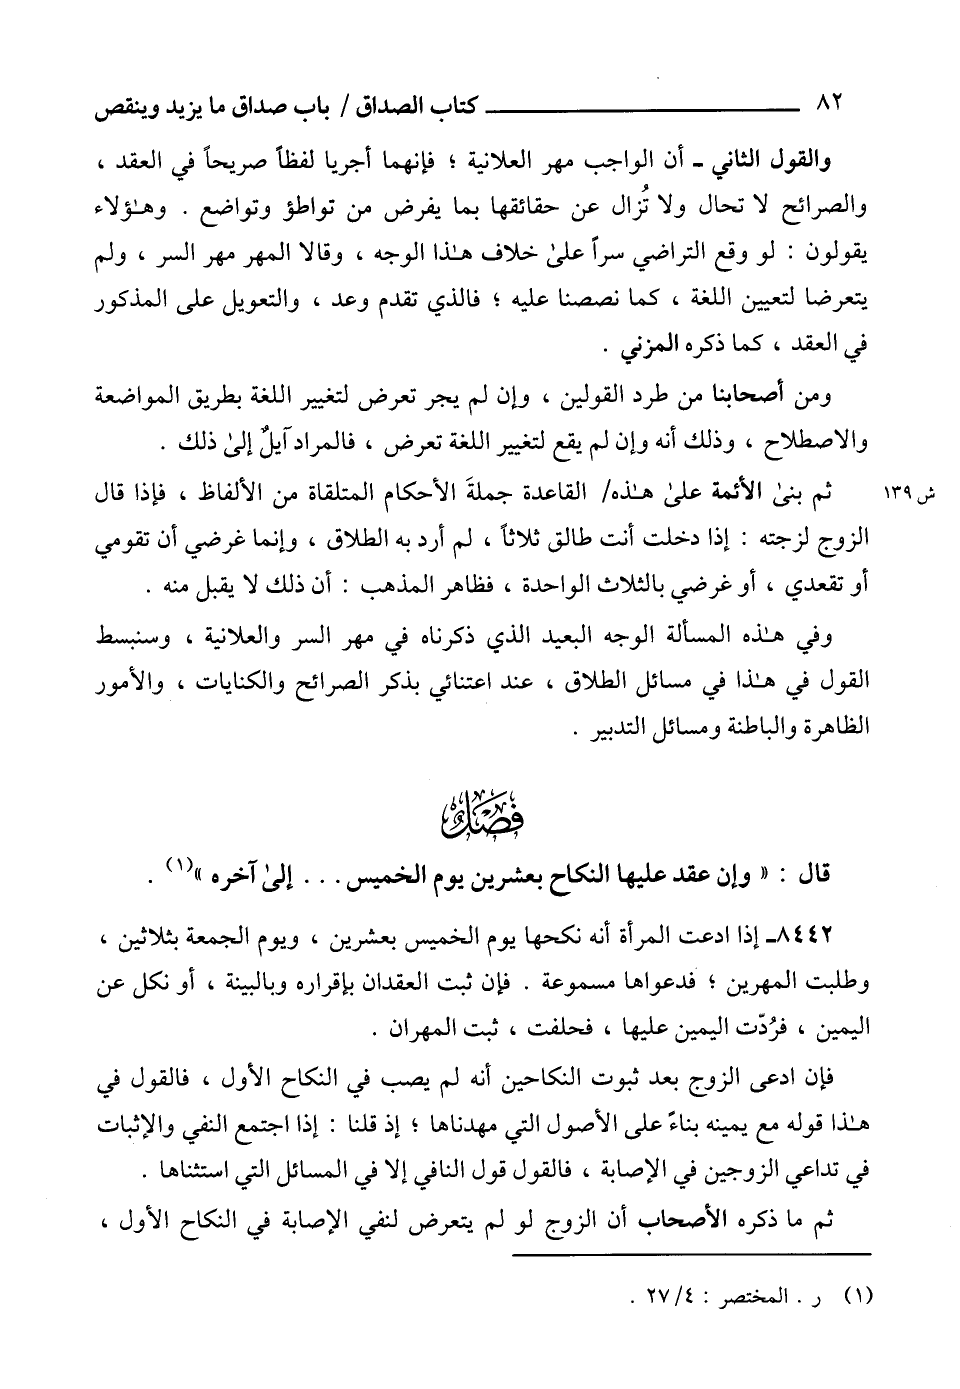 ٨٢ ــــــــــــــــــــــــــــ كتاب الصداق / باب صداق ما يزيد وينقص
والقول الثاني ـ أن الواجب مهر العلانية ؛ فإنهما أجريا لفظاً صريحاً في العقد ،
والصرائح لا تحال ولا تُزال عن حقائقها بما يفرض من تواطؤ وتواضع . وهـٰؤلاء
يقولون : لو وقع التراضي سراً علىٰ خلاف هـٰذا الوجه ، وقالا المهر مهر السر ، ولم
يتعرضا لتعيين اللغة ، كما نصصنا عليه ؛ فالذي تقدم وعد ، والتعويل على المذكور
في العقد ، كما ذكره المزني .
ومن أصحابنا من طرد القولين ، وإن لم يجر تعرض لتغيير اللغة بطريق المواضعة
والاصطلاح ، وذلك أنه وإن لم يقع لتغيير اللغة تعرض ، فالمراد آيلٌ إلىٰ ذلك .
ثم بنىٰ الأئمة علىٰ هـٰذه/ القاعدة جملةَ الأحكام المتلقاة من الألفاظ ، فإذا قال ش ١٣٩
الزوج لزجته : إذا دخلت أنت طالق ثلاثاً ، لم أرد به الطلاق ، وإنما غرضي أن تقومي
أو تقعدي ، أو غرضي بالثلاث الواحدة ، فظاهر المذهب : أن ذلك لا يقبل منه .
وفي هـٰذه المسألة الوجه البعيد الذي ذكرناه في مهر السر والعلانية ، وسنبسط
القول في هـٰذا في مسائل الطلاق ، عند اعتنائي بذكر الصرائح والكنايات ، والأمور
الظاهرة والباطنة ومسائل التدبير .
فصل
قال : « وإن عقد عليها النكاح بعشرين يوم الخميس . . . إلىٰ آخره »(١) .
٨٤٤٢ـ إذا ادعت المرأة أنه نكحها يوم الخميس بعشرين ، ويوم الجمعة بثلاثين ،
وطلبت المهرين ؛ فدعواها مسموعة . فإن ثبت العقدان بإقراره وبالبينة ، أو نكل عن
اليمين ، فرُدّت اليمين عليها ، فحلفت ، ثبت المهران .
فإن ادعى الزوج بعد ثبوت النكاحين أنه لم يصب في النكاح الأول ، فالقول في
هـٰذا قوله مع يمينه بناءً على الأصول التي مهدناها ؛ إذ قلنا : إذا اجتمع النفي والإثبات
في تداعي الزوجين في الإصابة ، فالقول قول النافي إلا في المسائل التي استثناها .
ثم ما ذكره الأصحاب أن الزوج لو لم يتعرض لنفي الإصابة في النكاح الأول ،
(١) ر . المختصر : ٤/ ٢٧ .